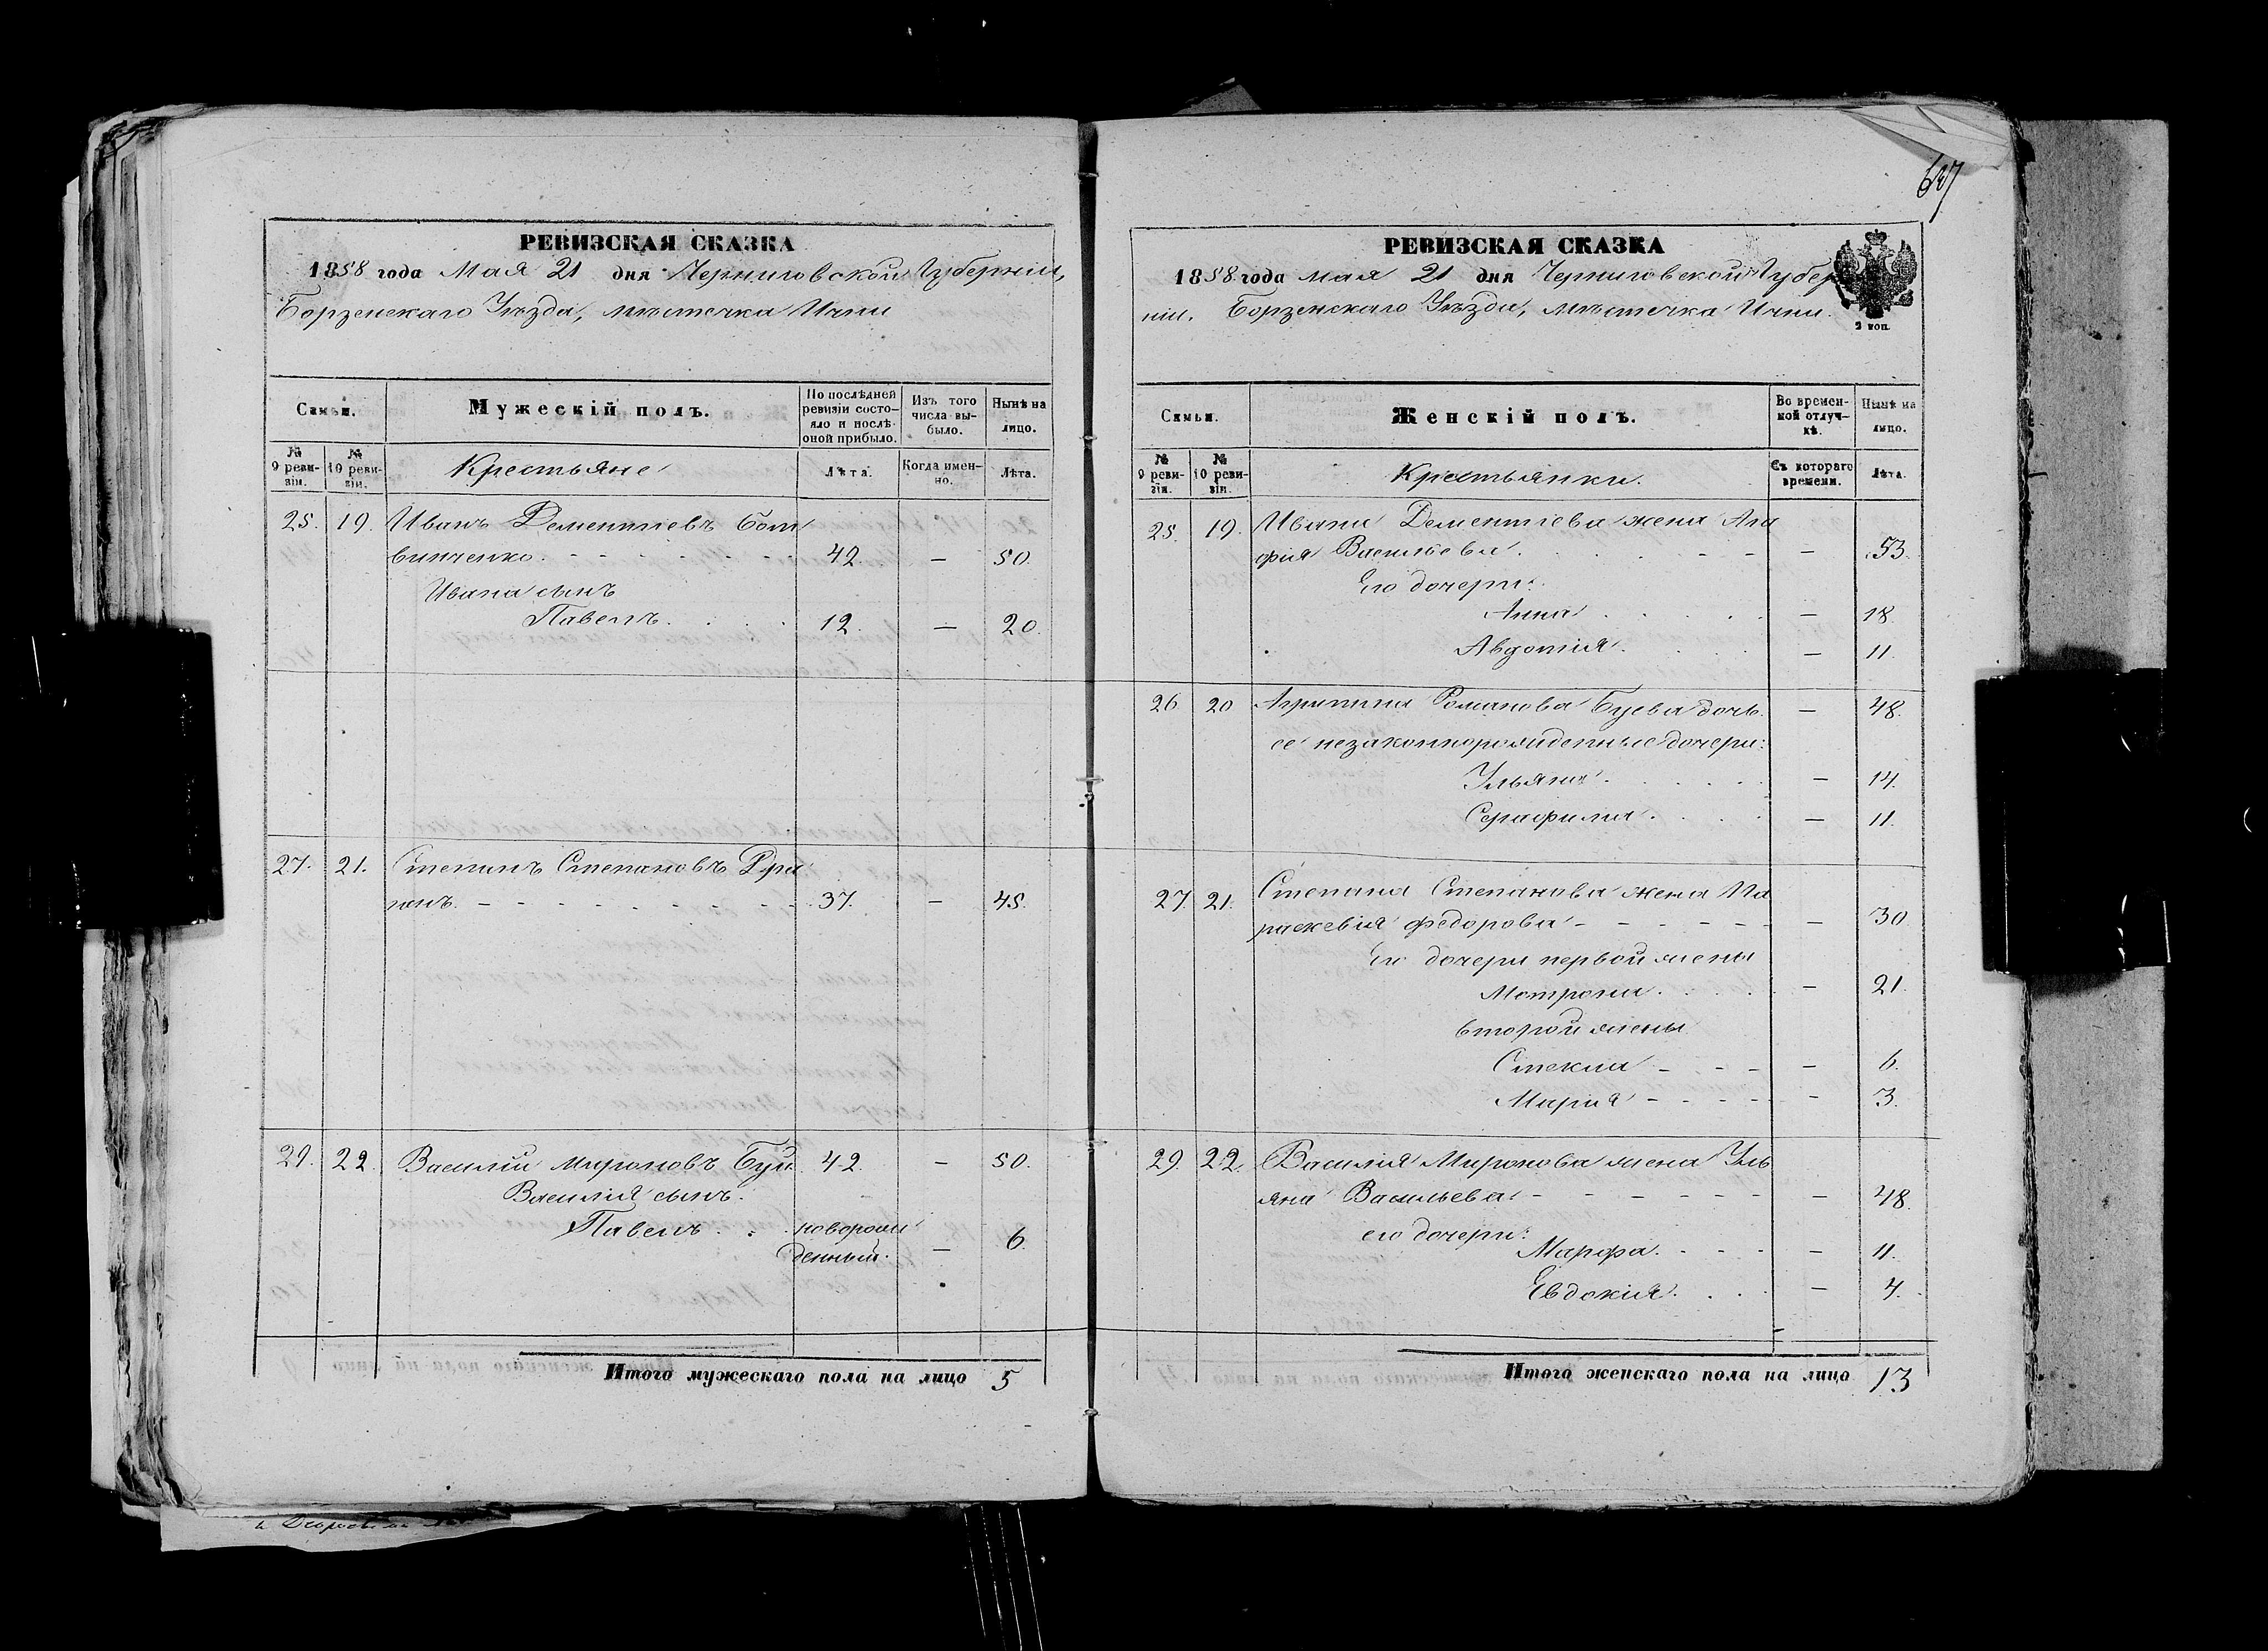 РЕВИЗСКАЯ СКАЗКА
1858 года Мая 21 дня Черниговской Губерніи,
Борзенскаго Уѣзда, мѣстечка Ични
Семьи.
Мужескій полъ.
По послѣдней ревизіи состояло и послѣ оной прибыло.
Изъ того числа выбыло.
Нынѣ на лицо.
№ 9 ревизіи.
№ 10 ревизіи.
Крестьяне
Лѣта.
Когда именно.
Лѣта.
25. 19. Иванъ Дементіевъ Бот
винченко. 42. — 50.
Ивана сынъ
Павелъ. 12. — 20.
27. 21. Степанъ Степановъ
37. — 45.
29. 22. Василій Мироновъ Буй. 42. — 50.
Василія сынъ.
Павелъ. новорож
денный. — 6.
Итого мужескаго пола на лицо 5
РЕВИЗСКАЯ СКАЗКА
1858 года мая 21 дня Черниговской Губер
ніи, Борзенскаго Уѣзда, мѣстечка Ични.
2 коп.
Семьи.
Женскій полъ.
Во временной отлучкѣ.
Нынѣ на лицо.
№ 9 ревизіи.
№ 10 ревизіи.
Крестьянки.
Съ котораго времени.
Лѣта.
25. 19. Ивана Дементіева жена Ага
фия Васильева. — 53.
Его дочери:
Анна — 18.
Авдотія. — 11.
26 20 Агрипина Романова Буева дочь. — 48.
ее незаконнорожденные дочери:
Ульяна. — 14.
Серафима. — 11.
27. 21. Степана Степанова жена Па
раскевія Федорова — 30
Его дочери первой жены
Матрона. — 21.
второй жены
Стекла — 6.
Марія — 3.
29. 22. Василія Миронова жена Уль
яна Васильева — 48.
его дочери:
Марфа. — 11.
Евдокія. — 4.
Итого женскаго пола на лицо 13